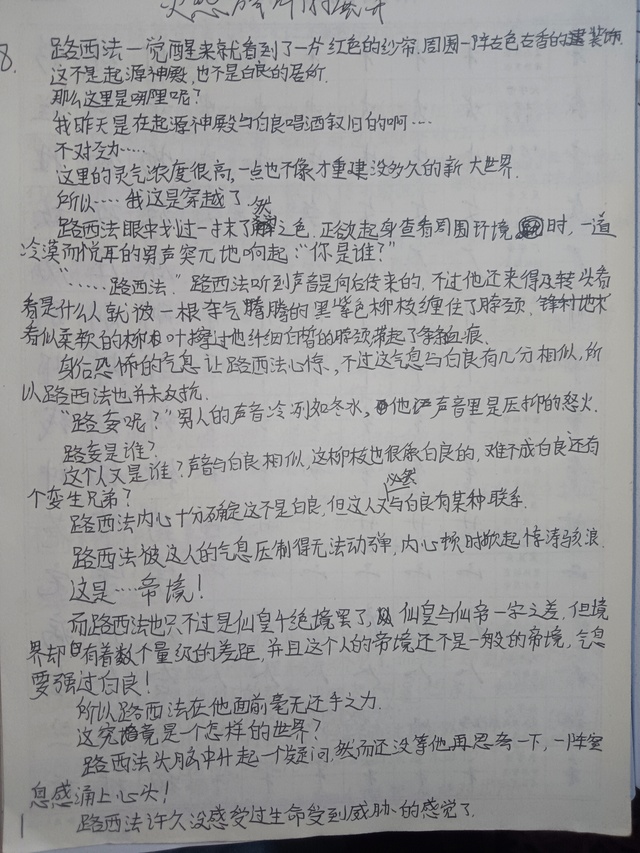 灵感碎片的展开
8.
路西法一觉醒来就看到了一片红色的纱帘,周围一阵古色古香的装饰.
这不是起源神殿,也不是白良的居所.
那么这里是哪里呢?
我昨天是在起源神殿与白良喝酒叙旧的啊····
不对劲·····
这里的灵气浓度很高,一点也不像才重建没多久的新大世界.
所以····我这是穿越了.
路西法眼中划过一抹了然之色.正欲起身查看周围环境时,一道
冷漠而悦耳的男声突兀地响起:“你是谁?”
“·····路西法.”路西法听到声音是向后传来的,不过他还来得及转头看
看是什么人就被一根杀气腾腾的黑紫色柳枝缠住了脖颈.
看似柔软的柳枝叶擦过他纤细白皙的脖颈带起了条条血痕.
身后恐怖的气息让路西法心惊,不过这气息与白良有几分相似,所
以路西法也并未反抗.
“路妄呢?”男人的声音冷冽如冬水,他声音里是压抑的怒火.
路妄是谁?
这个人又是谁?声音与白良相似,这柳枝也很像白良的,难不成白良还有
个孪生兄弟?
路西法内心十分确定这不是白良,但这人又必然与白良有某种联系.
路西法被这人的气息压制得无法动弹,内心顿时掀起惊涛骇浪.
这是····帝境!
而路西法也只不过是仙皇半绝境罢了,仙皇与仙帝一字之差,但境
界却有着数个量级的差距,并且这个人的帝境还不是一般的帝境,气息
要强过白良!
所以路西法在他面前毫无还手之力.
这究竟是一个怎样的世界?
路西法头脑中升起一个疑问,然而还没等他再思考一下,一阵窒
息感涌上心头!
路西法许久没感受过生命受到威胁的感觉了.